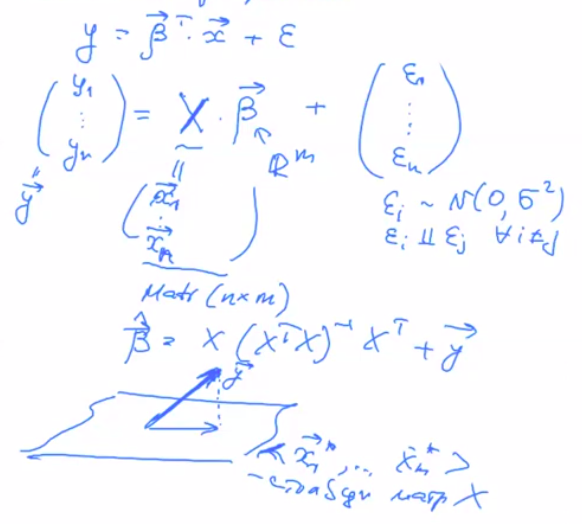 y = β⃗ᵀ · x⃗ + ε
(y₁ ⋮ yₙ) = X · β⃗ + (ε₁ ⋮ εₙ)
ℝᵐ
y⃗
(x⃗₁ ⋮ x⃗ₙ)
εᵢ ~ N(0, σ²)
εᵢ ⫫ εⱼ ∀ i ≠ j
Matr (n×m)
β̂⃗ = X (XᵀX)⁻¹ Xᵀ + y⃗
y⃗
< x⃗₁*, ... x⃗ₘ* >
- столбцы матр X